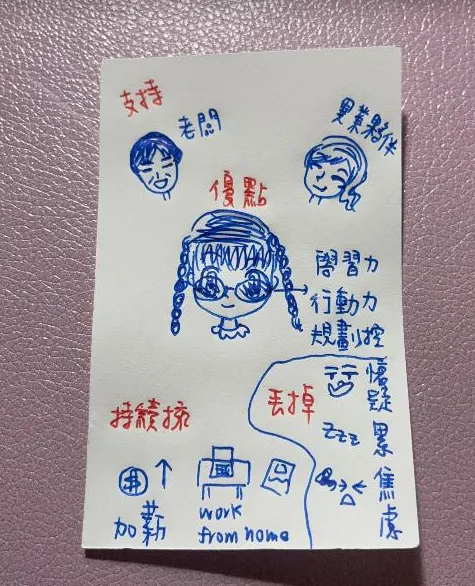 支持
老闆
異業夥伴
優點
學習力
行動力
規劃控
丟掉
懷疑
zzz 累
焦慮
持續擁
加薪
work
from home